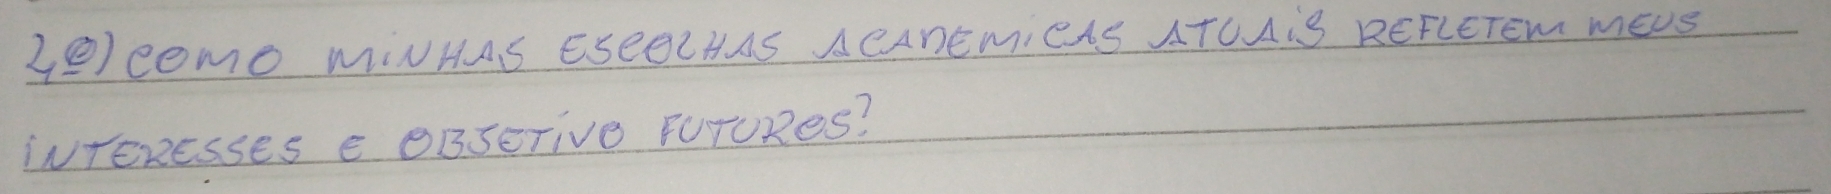 2º) COMO MINHAS ESCOLHAS ACADEMICAS ATUAIS REFLETEM MEUS
INTERESSES E OBJETIVO FUTUROS?